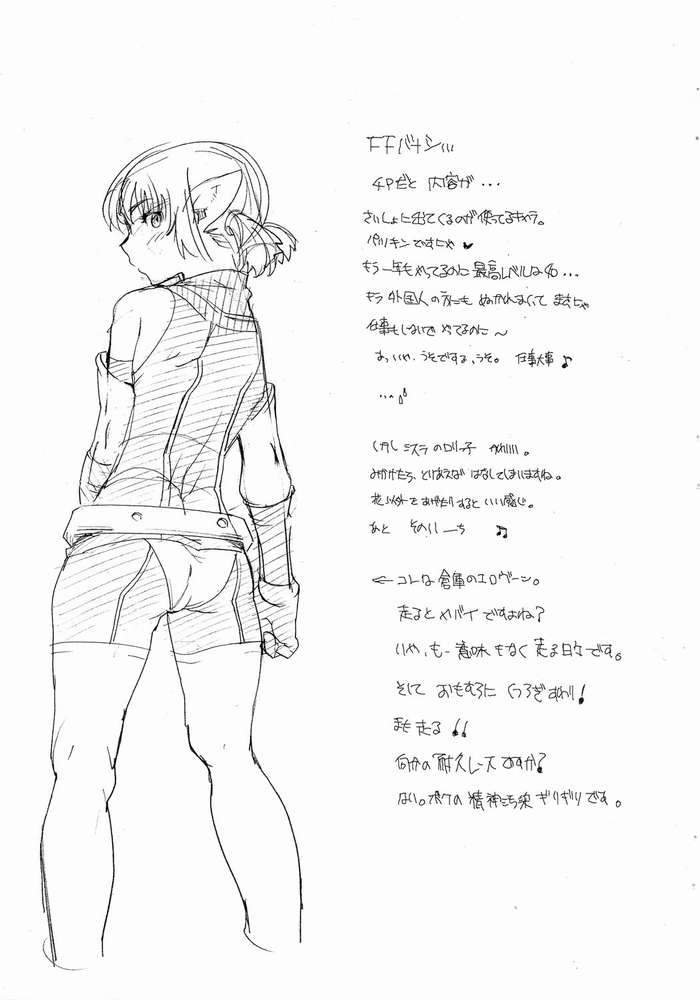 FFバナシ…
4Pだと 内容が・・・
さいしょに出てくるのが使ってるキャラ。
パツキンですにゃ♥
もう一年もやってるのに 最高レベルは40・・・
もう外国人の方にも
仕事もしないで やってるのに〜
あっいや、うそですよ、うそ。 仕事大事♪
しかし ミスラの ロリっ子
みかけたら、とりあえず はなしてしまいますね。
花以外で すると いい感じ。
あと そのいーち ♫
← コレな 倉庫のエロヴーン。
走るとヤバイですよね?
いやぃ、も〜意味もなく走る日々です。
そして おもむろに くつろぎすわり!
また走る!!
何かの耐久レースですか?
ない。ボクの精神汚染ギリギリです。